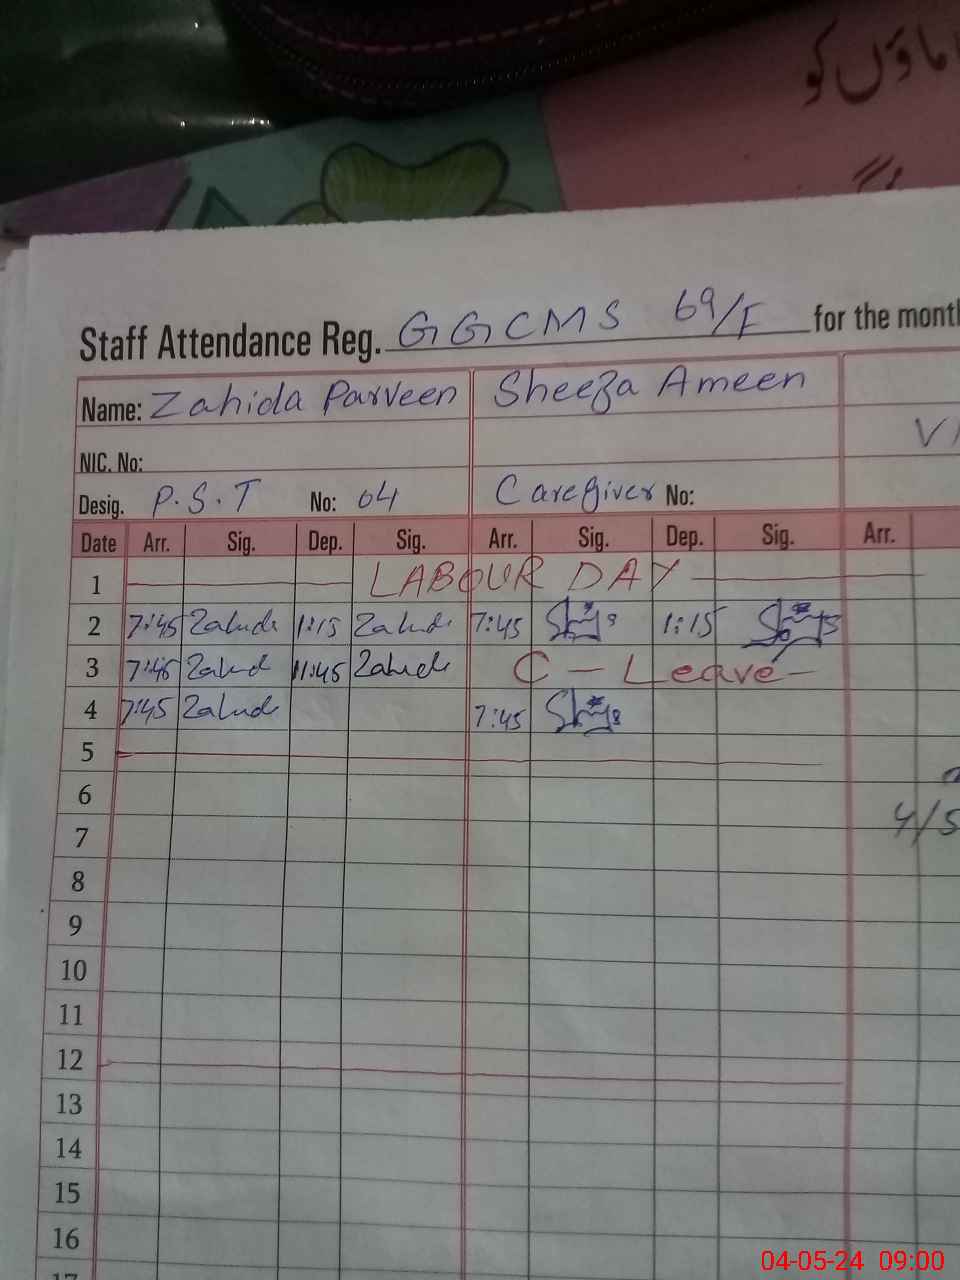 ماؤں کو
Staff Attendance Reg. GGCMS 69/F for the month
Name: Zahida Parveen Sheeza Ameen
NIC. No:
Desig. P.S.T No: 04 Caregiver No:
Date Arr. Sig. Dep. Sig. Arr. Sig. Dep. Sig. Arr.
1 LABOUR DAY
2 7:45 Zahida 1:15 Zahida 7:45 1:15
3 7:45 Zahida 11:45 Zahida C - Leave
4 7:45 Zahida 7:45
5
6
7 4/5
8
9
10
11
12
13
14
15
16
17
04-05-24 09:00